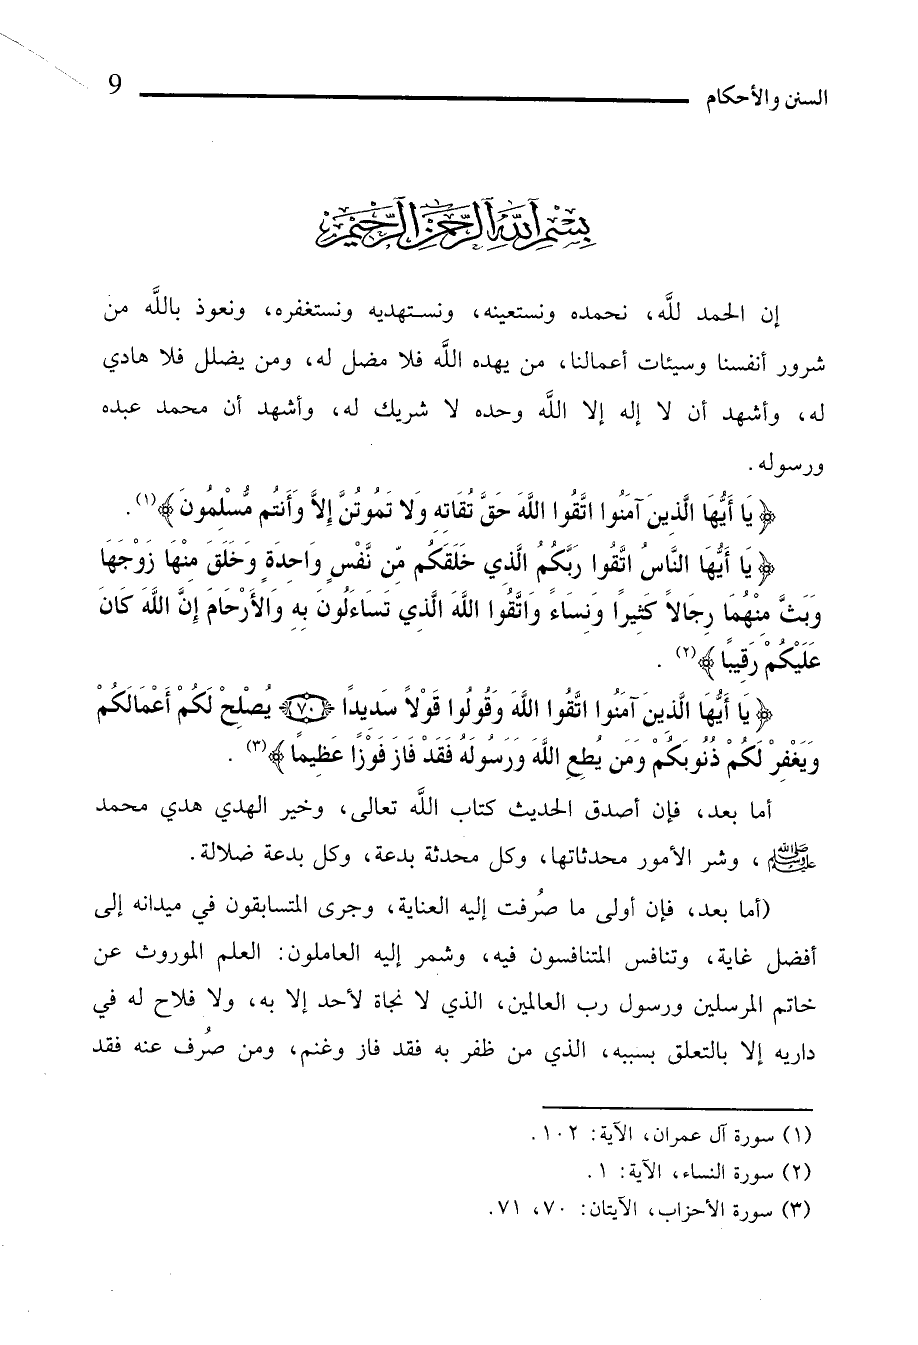 السنن والأحكام 9
بِسْمِ اللَّهِ الرَّحْمَنِ الرَّحِيمِ
إن الحمد للَّه، نحمده ونستعينه، ونستهديه ونستغفره، ونعوذ باللَّه من
شرور أنفسنا وسيئات أعمالنا، من يهده اللَّه فلا مضل له، ومن يضلل فلا هادي
له، وأشهد أن لا إله إلا اللَّه وحده لا شريك له، وأشهد أن محمد عبده
ورسوله.
﴿يَا أَيُّهَا الَّذِينَ آمَنُوا اتَّقُوا اللَّهَ حَقَّ تُقَاتِهِ وَلا تَمُوتُنَّ إِلاَّ وَأَنتُم مُّسْلِمُونَ﴾(١).
﴿يَا أَيُّهَا النَّاسُ اتَّقُوا رَبَّكُمُ الَّذِي خَلَقَكُم مِّن نَّفْسٍ وَاحِدَةٍ وَخَلَقَ مِنْهَا زَوْجَهَا
وَبَثَّ مِنْهُمَا رِجَالاً كَثِيراً وَنِسَاءً وَاتَّقُوا اللَّهَ الَّذِي تَسَاءَلُونَ بِهِ وَالأَرْحَامَ إِنَّ اللَّهَ كَانَ
عَلَيْكُمْ رَقِيبًا﴾(٢) .
﴿يَا أَيُّهَا الَّذِينَ آمَنُوا اتَّقُوا اللَّهَ وَقُولُوا قَوْلاً سَدِيدًا ﴿٧٠﴾ يُصْلِحْ لَكُمْ أَعْمَالَكُمْ
وَيَغْفِرْ لَكُمْ ذُنُوبَكُمْ وَمَن يُطِعِ اللَّهَ وَرَسُولَهُ فَقَدْ فَازَ فَوْزًا عَظِيمًا﴾(٣) .
أما بعد، فإن أصدق الحديث كتاب اللَّه تعالى، وخير الهدي هدي محمد
ﷺ ، وشر الأمور محدثاتها، وكل محدثة بدعة، وكل بدعة ضلالة.
(أما بعد، فإن أولى ما صُرفت إليه العناية، وجرى المتسابقون في ميدانه إلى
أفضل غاية، وتنافس المتنافسون فيه، وشمر إليه العاملون: العلم الموروث عن
خاتم المرسلين ورسول رب العالمين، الذي لا نجاة لأحد إلا به، ولا فلاح له في
داريه إلا بالتعلق بسببه، الذي من ظفر به فقد فاز وغنم، ومن صُرف عنه فقد
(١) سورة آل عمران، الآية: ١٠٢.
(٢) سورة النساء، الآية: ١.
(٣) سورة الأحزاب، الآيتان: ٧٠، ٧١.